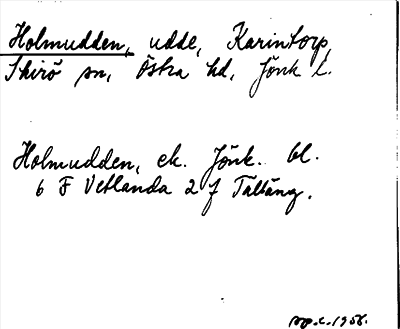 Holmudden, udde, Karintorp,
Skirö sn, Östra hd, Jönk l.
Holmudden, ek. Jönk. bl.
6 F Vetlanda 2 f Tälläng.
1958.